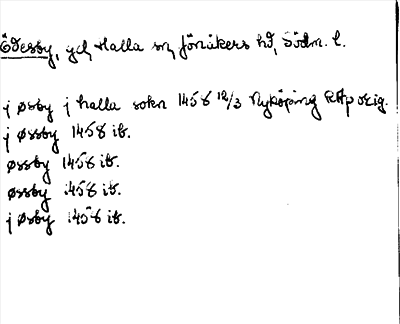 Ödesby, gd, Halla sn, Jönåkers hd, Södm. l.
j øsby j halla sokn 1458 12/3 Nyköping RAp orig.
j øssby 1458 ib.
øssby 1458 ib.
øssby 1458 ib.
j øsby 1458 ib.